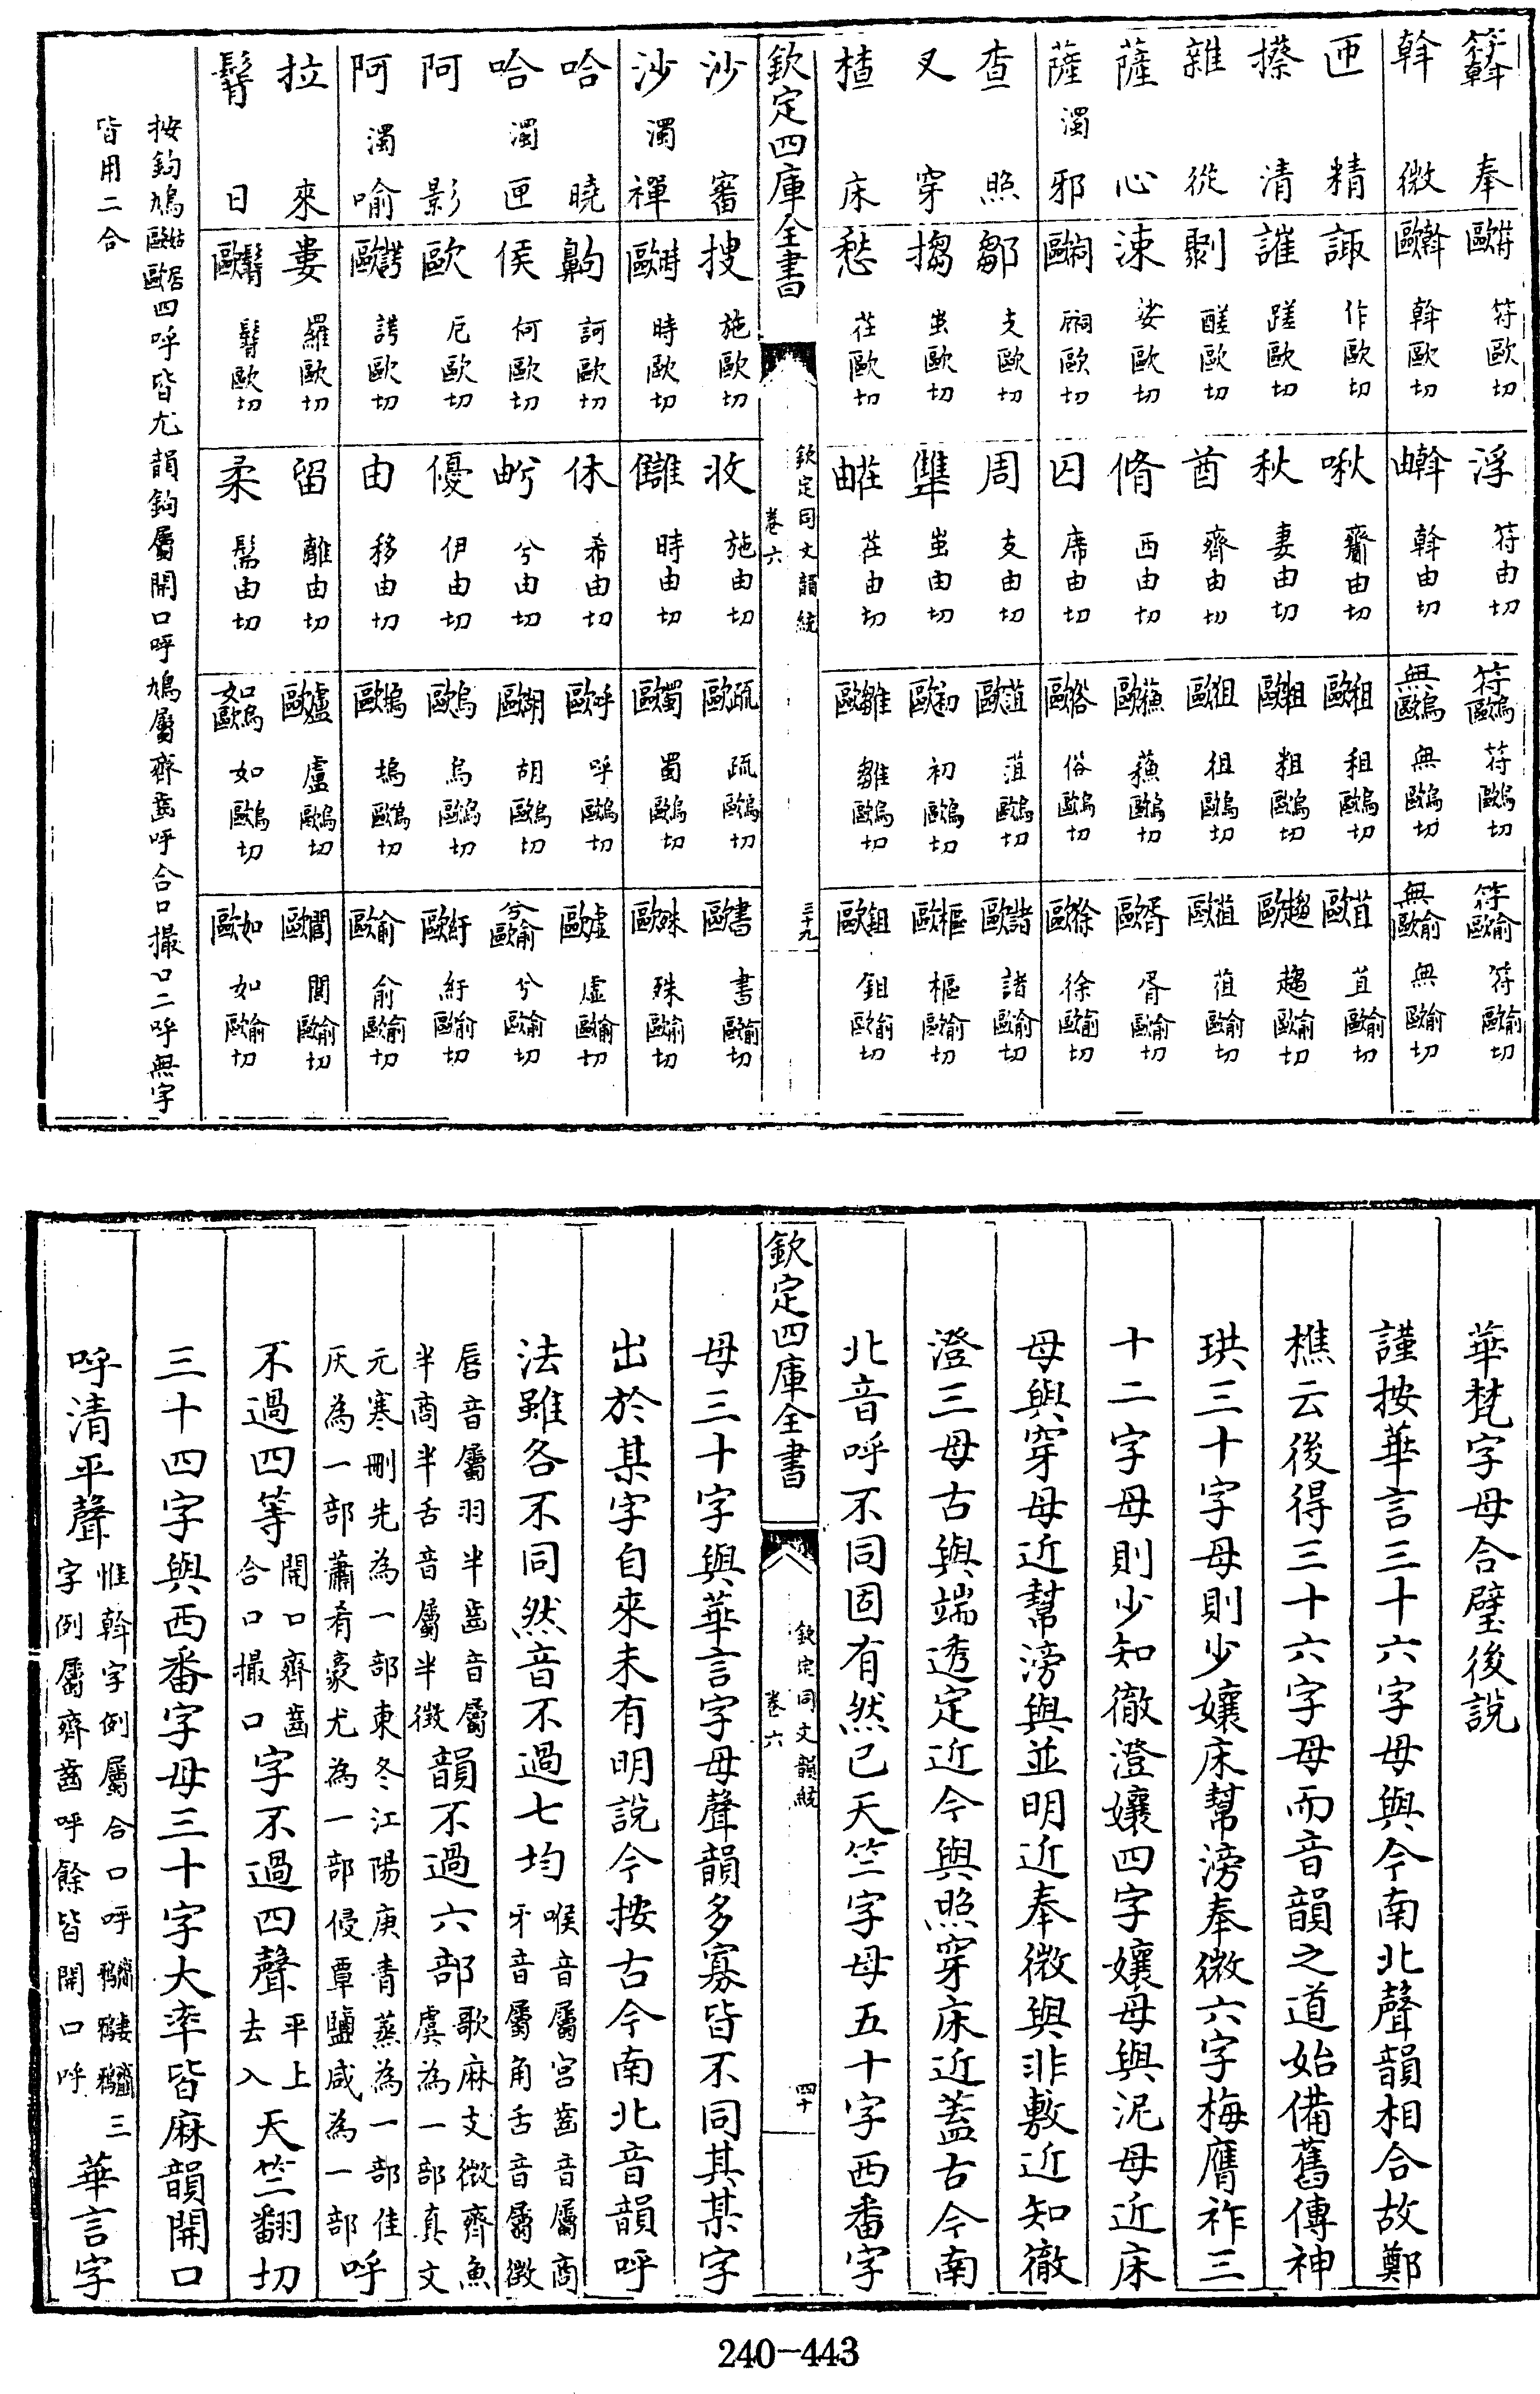 符斡 奉 符歐 符歐切 浮 符由切 符烏歐 符烏歐切 符俞歐 符俞歐切
斡 微 斡歐 斡歐切 斡由 斡由切 無烏歐 無烏歐切 無俞歐 無俞歐切
匝 精 諏 作歐切 啾 齎由切 租歐 租烏歐切 苴歐 苴俞歐切
攃 清 誰 蹉歐切 秋 妻由切 粗歐 粗烏歐切 趨歐 趨俞歐切
雜 從 剽 醝歐切 酋 齊由切 徂歐 徂烏歐切 葅歐 葅俞歐切
薩 心 涑 娑歐切 脩 西由切 蘓歐 蘓烏歐切 胥歐 胥俞歐切
薩 濁 邪 祠歐 祠歐切 囚 席由切 俗歐 俗烏歐切 徐歐 徐俞歐切
查 照 鄒 支歐切 周 支由切 菹歐 菹烏歐切 諸歐 諸俞歐切
叉 穿 搊 蚩歐切 犨 蚩由切 初歐 初烏歐切 樞歐 樞俞歐切
楂 床 愁 茬歐切 茬由 茬由切 雛歐 雛烏歐切 鉏歐 鉏俞歐切
欽定四庫全書
欽定同文韻統
卷六
三十九
沙 審 搜 施歐切 收 施由切 疏歐 疏烏歐切 書歐 書俞歐切
沙 濁 禪 時歐 時歐切 讎 時由切 蜀歐 蜀烏歐切 殊歐 殊俞歐切
哈 曉 齁 訶歐切 休 希由切 呼歐 呼烏歐切 虛歐 虛俞歐切
哈 濁 匣 侯 何歐切 兮由 兮由切 胡歐 胡烏歐切 兮俞歐 兮俞歐切
阿 影 歐 厄歐切 優 伊由切 烏歐 烏烏歐切 紆歐 紆俞歐切
阿 濁 喻 諤歐 諤歐切 由 移由切 塢歐 塢烏歐切 俞歐 俞俞歐切
拉 來 婁 羅歐切 留 離由切 盧歐 盧烏歐切 閭歐 閭俞歐切
日 柔 如烏歐 如烏歐切 如歐 如俞歐切
按鉤鳩姑歐居歐四呼皆尤韻鉤屬開口呼鳩屬齊齒呼合口撮口二呼無字
皆用二合
華梵字母合璧後說
謹按華言三十六字母與今南北聲韻相合故鄭
樵云後得三十六字母而音韻之道始備舊傳神
珙三十字母則少孃床幫滂奉微六字梅膺祚三
十二字母則少知徹澄孃四字孃母與泥母近床
母與穿母近幫滂與並明近奉微與非敷近知徹
澄三母古與端透定近今與照穿床近蓋古今南
北音呼不同固有然已天竺字母五十字西番字
欽定四庫全書
欽定同文韻統
卷六
四十
母三十字與華言字母聲韻多寡皆不同其某字
出於某字自來未有明說今按古今南北音韻呼
法雖各不同然音不過七均喉音屬宮齒音屬商牙音屬角舌音屬徵
唇音屬羽半齒音屬半商半舌音屬半徵韻不過六部歌麻支微齊魚虞為一部真文
元寒刪先為一部東冬江陽庚青蒸為一部佳灰為一部蕭肴豪尤為一部侵覃鹽咸為一部呼
不過四等開口齊齒合口撮口字不過四聲平上去入天竺翻切
三十四字與西番字母三十字大率皆麻韻開口
呼清平聲惟斡字例屬合口呼三字例屬齊齒呼餘皆開口呼華言字
240-443